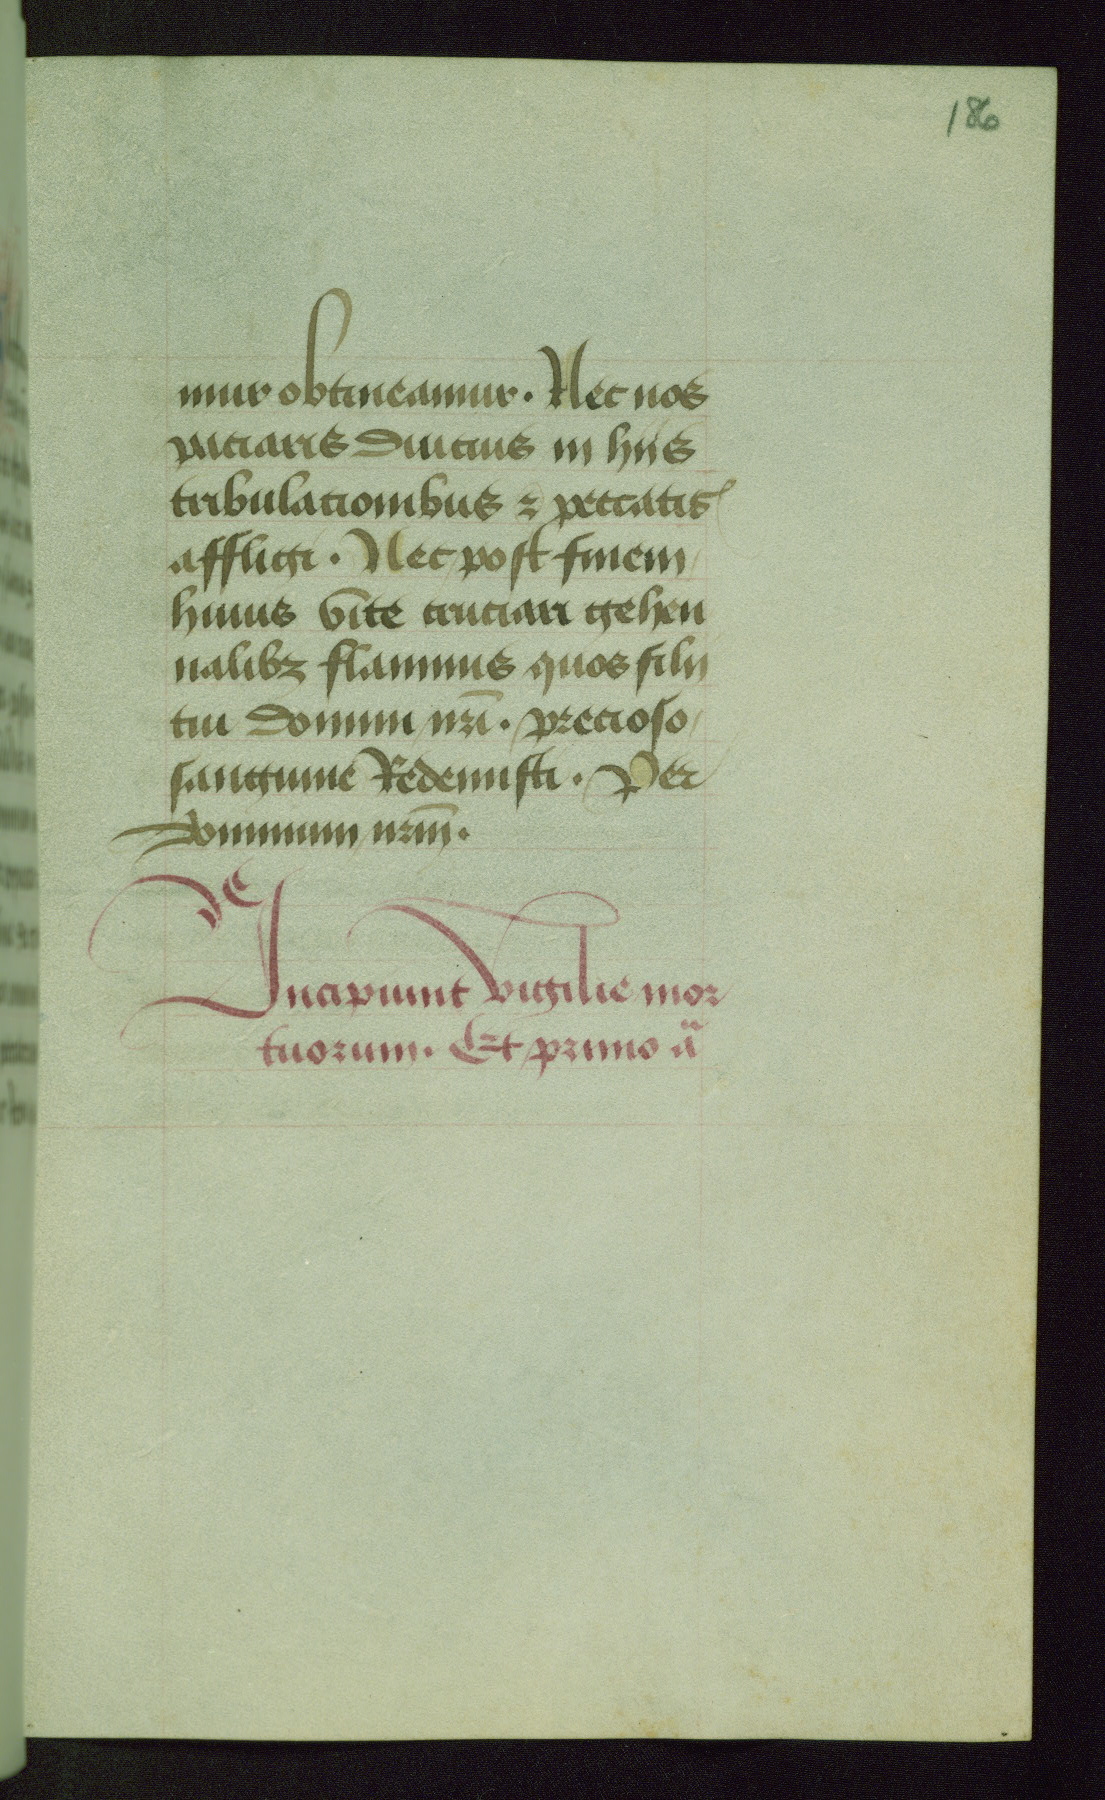 186
mur obtineamur. Nec nos
paciaris diucius in hijs
tribulacionibus ⁊ peccatis
affligi. Nec post finem
huius vite cruciari gehen
nalibꝫ flammis quos filij
tui domini nr̄i. precioso
sanguine Redemisti. Per
dominum nr̄m.
Incipiunt vigilie mor
tuorum. Et primo ā